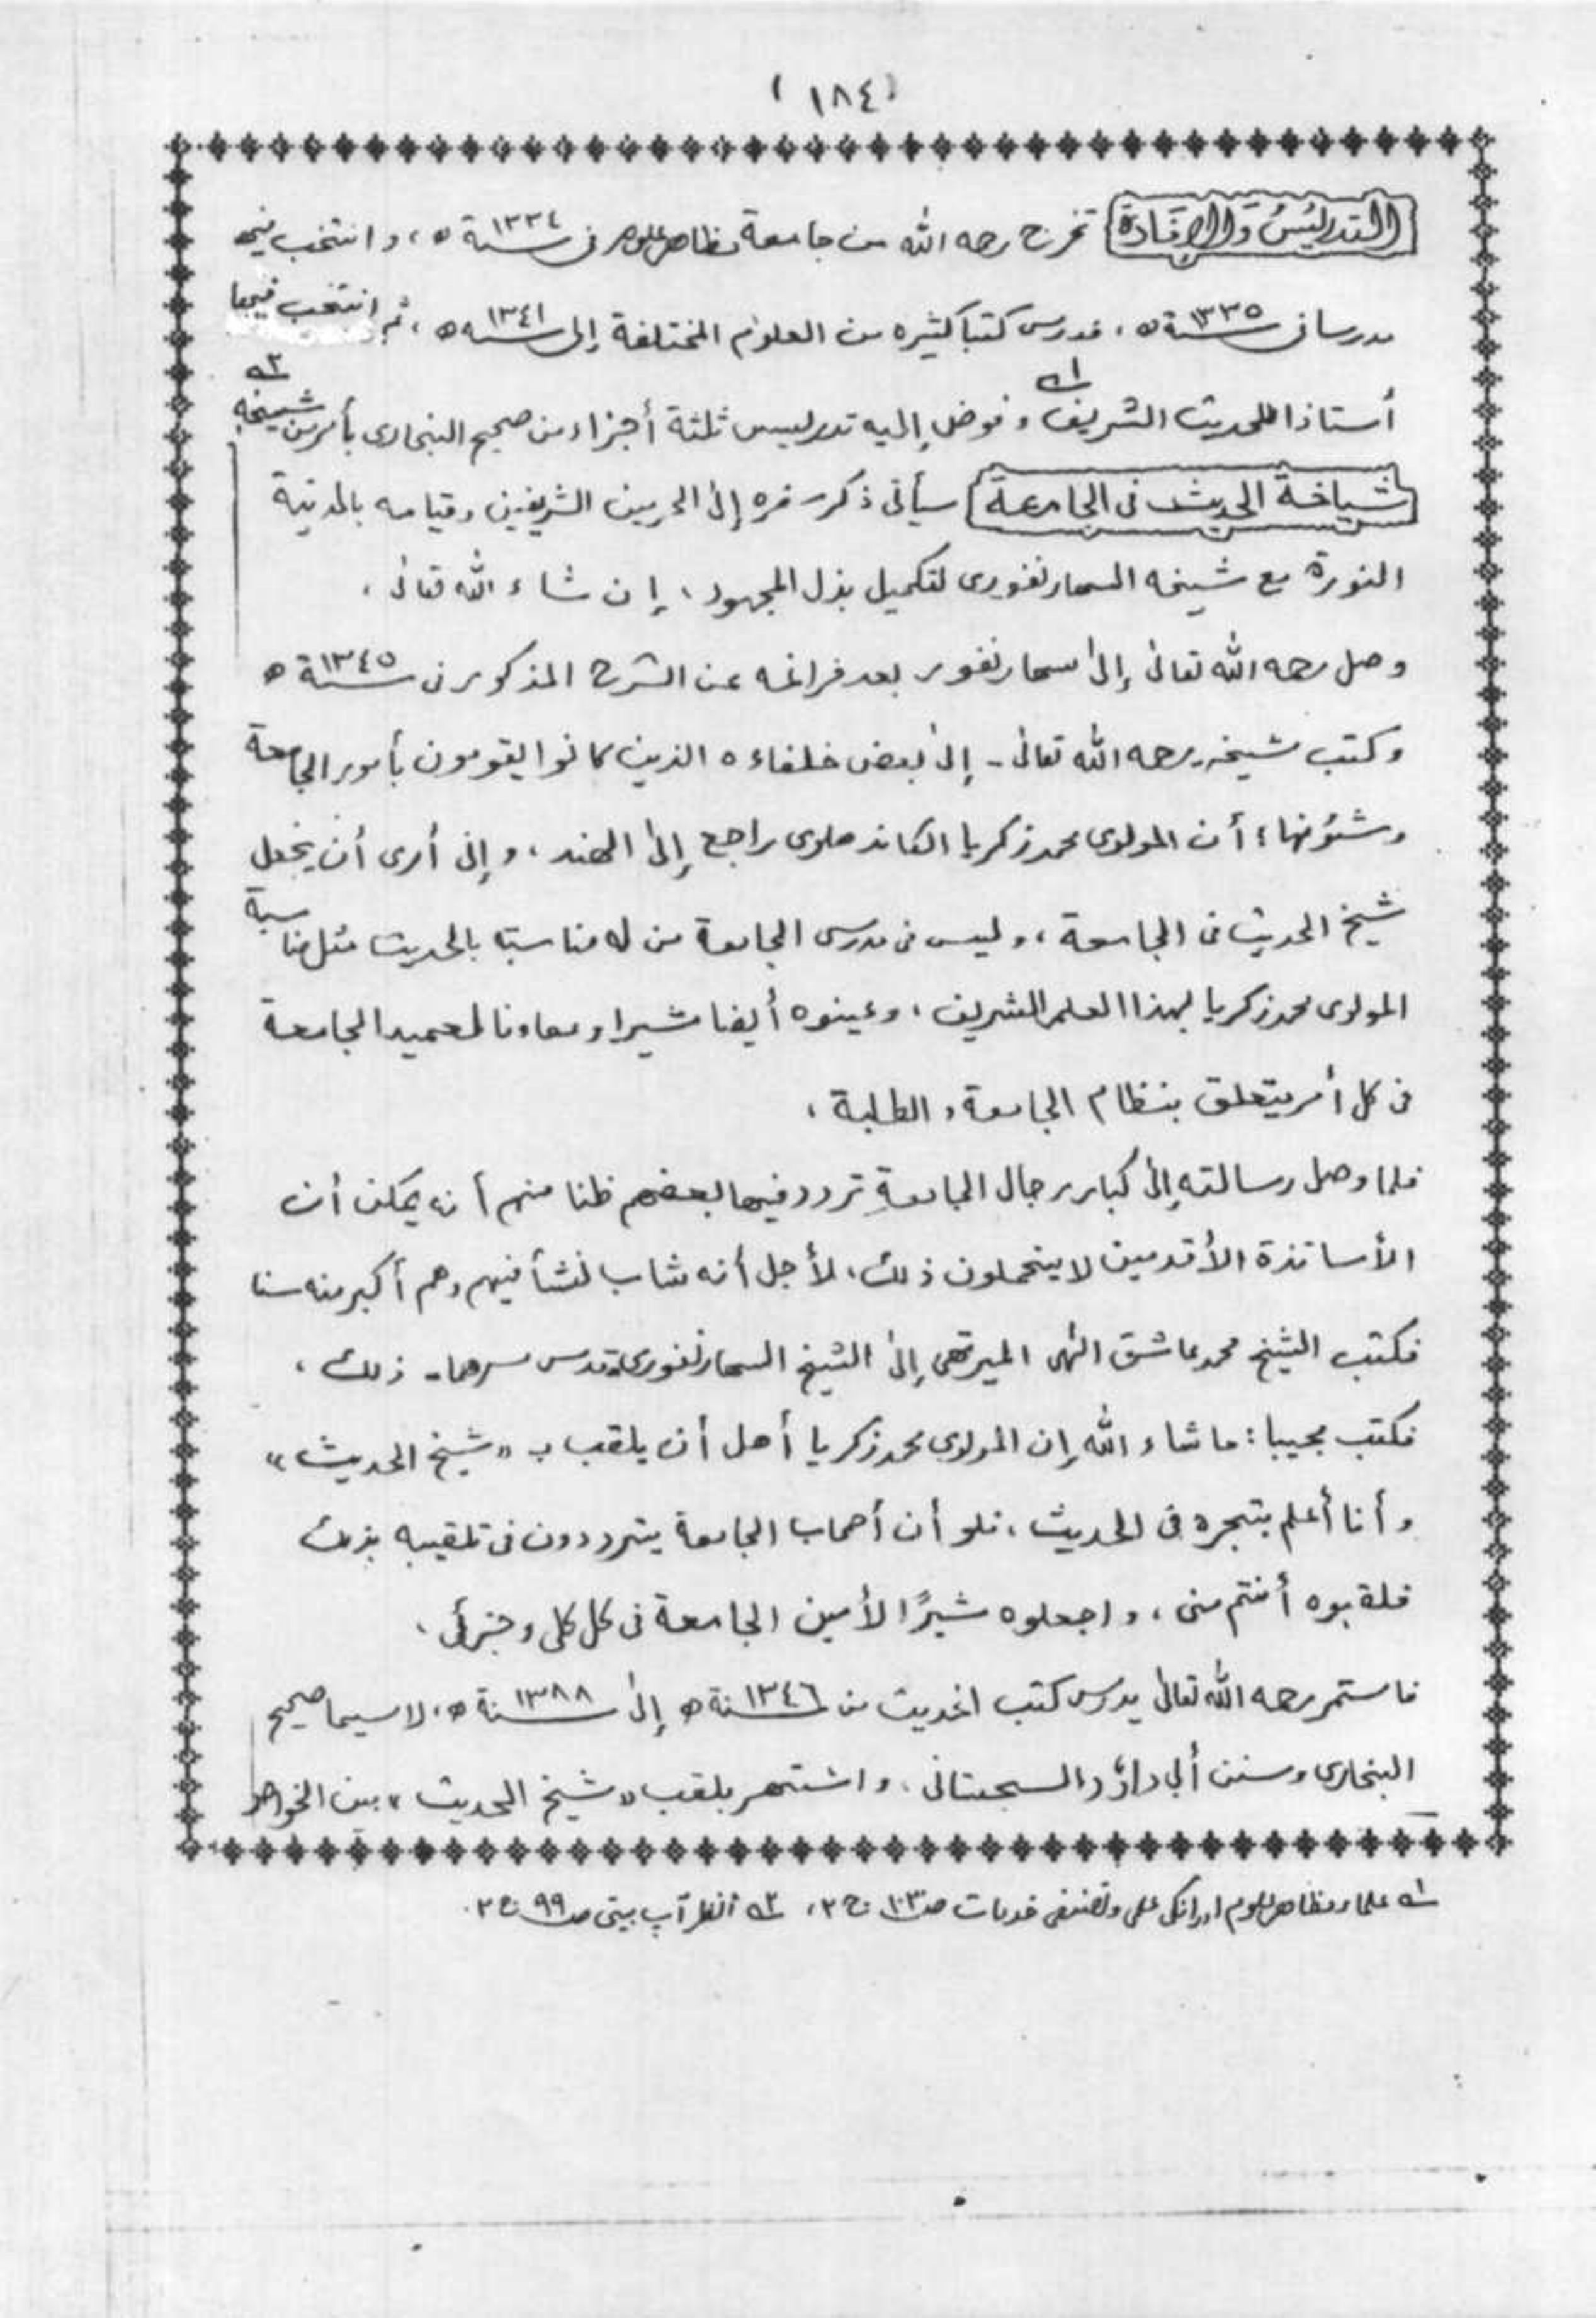 (١٨٤)
التدريس والإفادة تخرج رحمه الله من جامعة مظاهر علوم في سنة ١٣٣٤ ه، وانتخب فيها
مدرسا في سنة ١٣٣٥ ه، فدرس كتبا كثيره من العلوم المختلفة إلى سنه ١٣٤١ ه، ثم انتخب فيها
أستاذا للحديث الشريف ١ وفوض إليه تدريس ثلثة أجزاء من صحيح البخاري بأمر من شيخه ٢
شياخة الحديث في الجامعة سيأتي ذكر سفره إلى الحرمين الشريفين وقيامه بالمدينة
المنورة مع شيخه السهارنفوري لتكميل بذل المجهود، إن شاء الله تعالى،
وصل رحمه الله تعالى إلى سهارنفور بعد فراغه عن الشرح المذكور في سنة ١٣٤٥ ه
وكتب شيخه - رحمه الله تعالى - إلى بعض خلفاءه الذين كانوا يقومون بأمور الجامعة
وشئونها، أن المولوى محمد زكريا الكاندهلوى راجع إلى الهند، وإني أرى أن يجعل
شيخ الحديث في الجامعة، وليس في مدرس الجامعة من له مناسبة بالحديث مثل مناسبة
المولوى محمد زكريا لهذا العلم الشريف، وعينوه أيضا مشيرا ومعاونا لعميد الجامعة
في كل أمر يتعلق بنظام الجامعة والطلبة،
فلما وصل رسالته إلى كبار رجال الجامعةِ تردد فيها بعضهم ظنا منهم أنه يمكن أن
الأساتذة الأقدمين لا يتحملون ذلك، لأجل أنه شاب نشأ فيهم وهم أكبر منه سنا
فكتب الشيخ محمد عاشق الٰهى الميرتهى إلى الشيخ السهارنفورى - قدس سرهما - ذلك،
فكتب مجيبا: ما شاء الله إن المولوى محمد زكريا أهل أن يلقب بـ "شيخ الحديث"
وأنا أعلم بتبحره في الحديث، فلو أن أصحاب الجامعة يترددون في تلقيبه بذلك
فلقبوه أنتم مني، واجعلوه مشيرًا لأمين الجامعة في كل كلى وجزئي،
فاستمر رحمه الله تعالى يدرس كتب الحديث من سنة ١٣٤٦ ه إلى سنة ١٣٨٨ ه، لا سيما صحيح
البخارى وسنن أبي داؤد السجستاني، واشتهر بلقب "شيخ الحديث" بين الخواص
١ علماء مظاهر علوم اور انكى علمى وتصنيفى خدمات ص ١٠٣ ج ٢، ٢ انظر آپ بيتى ص ٩٩ ج ٢.